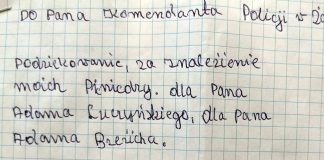 DO Pana Komendanta Policji w
podziękowanie, za znaleźienie
moich Piniędzy. dla pana
Adama Łuczyńskiego, dla pana
Adama Brericha.